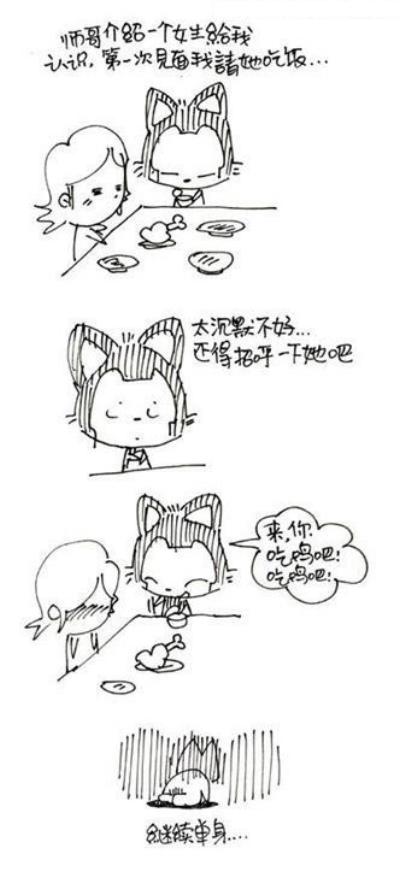 师哥介绍一个女生給我
认识，第一次見面我請她吃饭...
太沉默不好...
还得招呼一下她吧
来，你
吃鸡吧！
吃鸡吧！
継续单身....